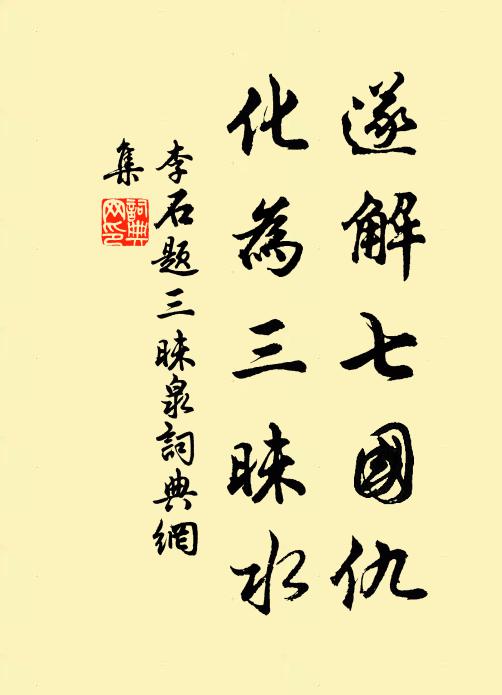 遂解七國仇
化為三昧水
李石題三昧泉詞典網
集
詞典網印